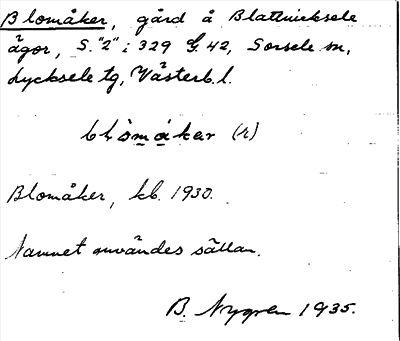 Blomåker, gård å Blattnicksele
ägor, S. "2" i 329 G 42, Sorsele sn,
Lycksele tg, Västerb. l.
Blomåker, kb. 1930.
Namnet användes sällan.
B. Nygren 1935.